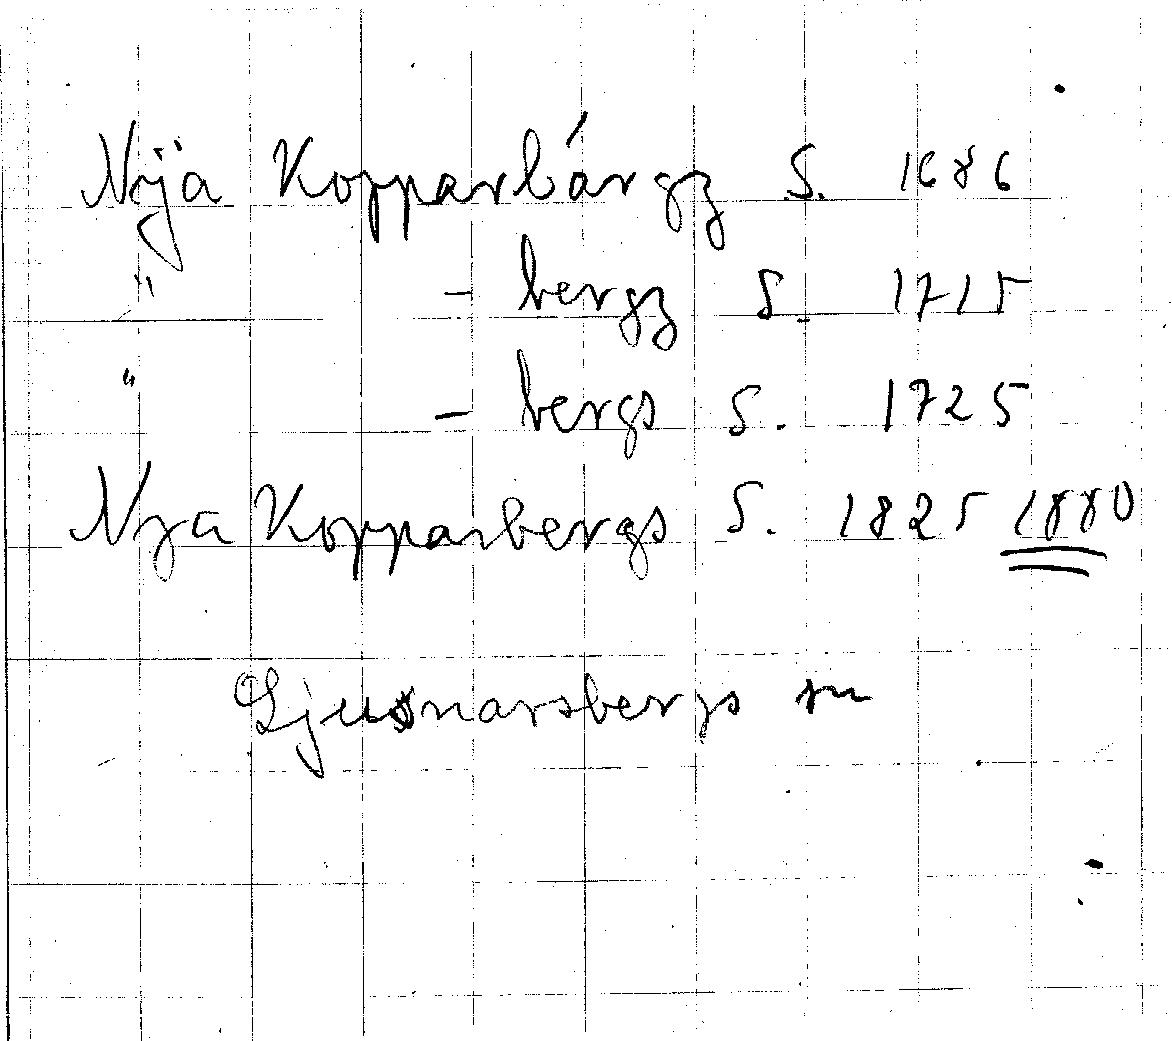 Nÿa Kopparbárgz S. 1686
" - bergz S. 1715
" - bergs S. 1725
Nya Kopparbergs S. 1825 1880
Ljusnarsbergs sn